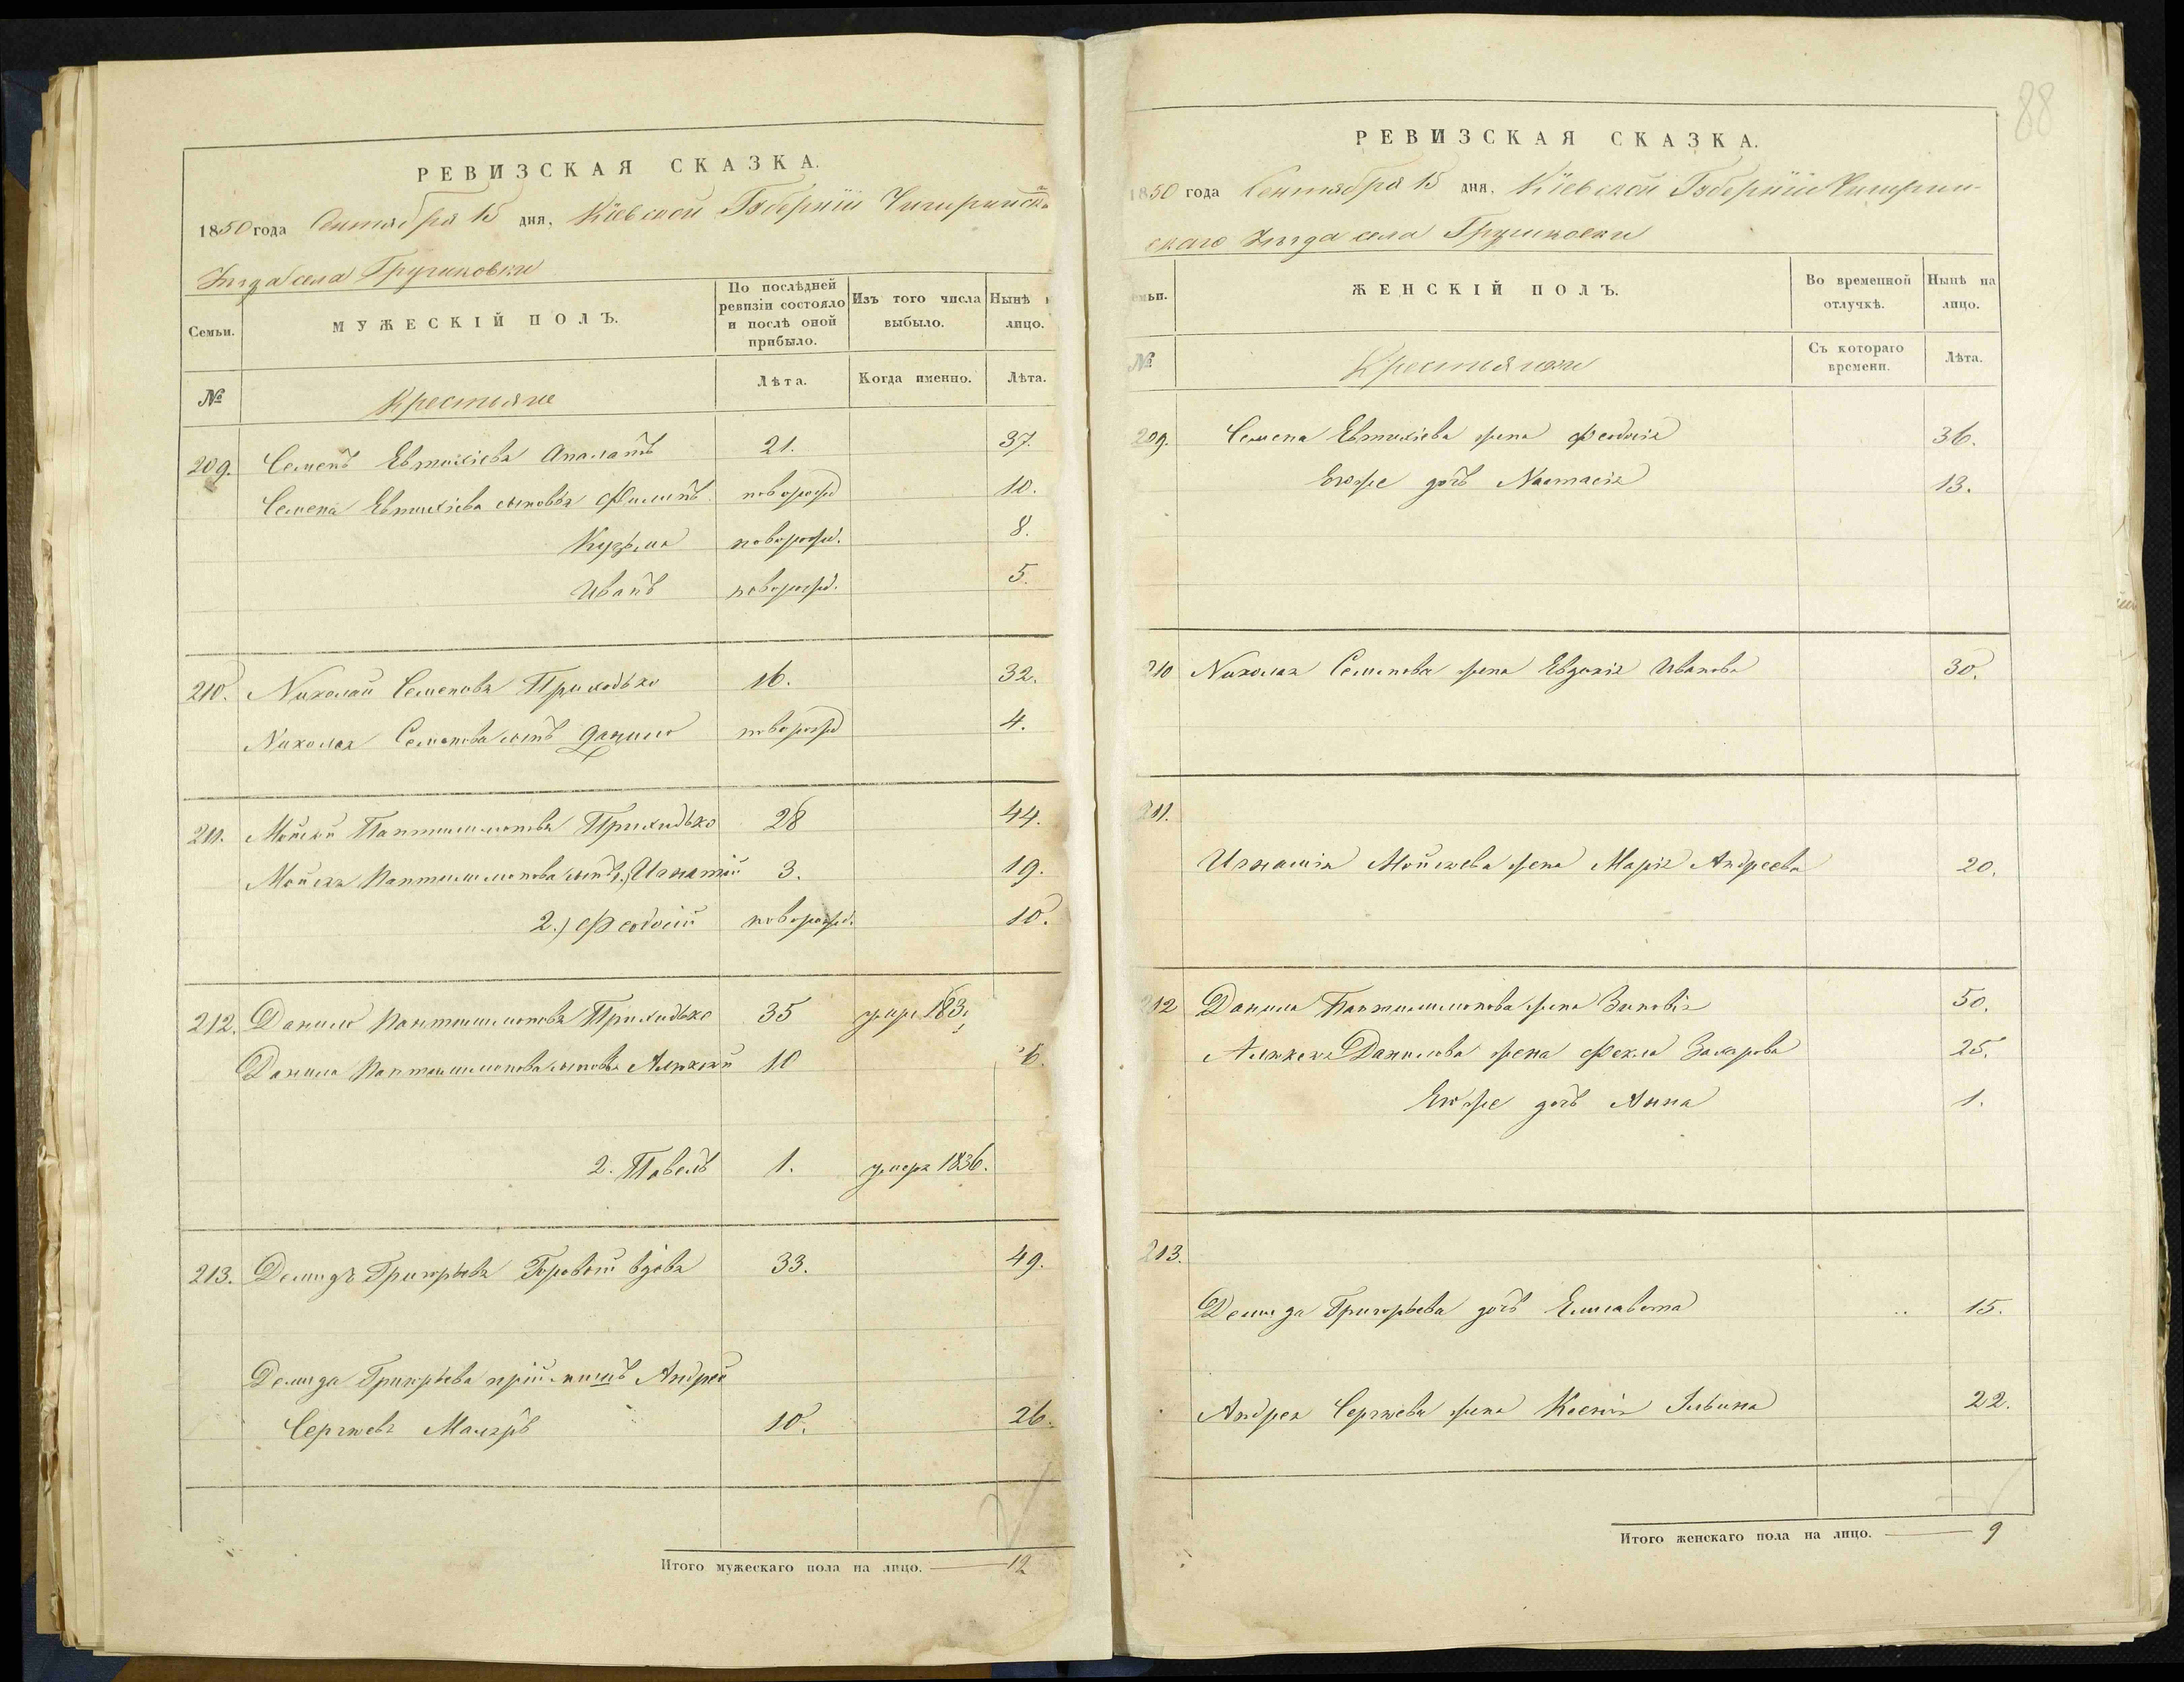 РЕВИЗСКАЯ СКАЗКА.
1850 года Сентября 15 дня, Кіевской Губерніи Чигиринска
Уезда села Грушковки
Семьи. МУЖЕСКІЙ ПОЛЪ. По послѣдней ревизіи состояло и послѣ оной прибыло. Изъ того числа выбыло. Нынѣ лицо.
№ Крестьяне Лѣта. Когда именно. Лѣта.
209. Семенъ Евтихіевъ 21. 37.
Семена Евтихіева сыновья Филипъ новорожд 10.
Кузьма новорожд. 8.
Иванъ новорожд. 5.
210. Николай Семеновъ Приходько 16. 32.
Николая Семенова сынъ Данило новорожд 4.
211. Мойсей Пантилимоновъ Приходько 28 44.
Мойсея Пантилимонова сынъ 1, Игнатій 3. 19.
2.) Федосій новорожд. 10.
212. Данило Пантилимоновъ Приходько 35 183
Данила Пантилимонова сыновья Алексѣй 10 6.
2. Павелъ 1. умеръ 1836.
213. Демидъ Григорьевъ вдовъ 33. 49.
Демида Григорьева Андрей
Сергѣевъ 10. 26.
Итого мужескаго пола на лицо. 12
88
РЕВИЗСКАЯ СКАЗКА.
1850 года Сентября 15 дня, Кіевской Губерніи Чигирин-
скаго Уезда села Грушковки
емьи. ЖЕНСКІЙ ПОЛЪ. Во временной отлучкѣ. Нынѣ на лицо.
№ Крестьянки Съ котораго времени. Лѣта.
209. Семена Евтихіева жена Феодосія 36.
Егоже дочь Настасія 13.
210 Николая Семенова жена Евдокія Иванова 30.
211.
Игнатія Мойсеева жена Марія Андреева 20.
212 Данила Пантилимонова жена Зиновія 50.
Алексея Данилова жена Фекла Захарова 25.
Егоже дочь Анна 1.
213.
Демида Григорьева дочь Елисавета 15.
Андрея Сергѣева жена Ксенія 22.
Итого женскаго пола на лицо. 9